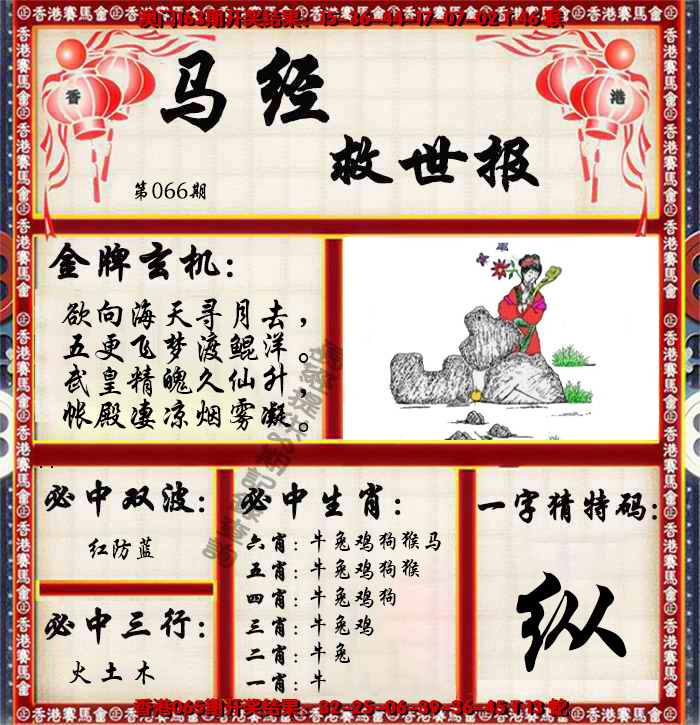 澳门163期开奖结果：15-36-44-17-07-02 T 46 猴
香 港
马经
救世报
第066期
金牌玄机：
欲向海天寻月去，
五更飞梦渡鲲洋。
武皇精魄久仙升，
帐殿凄凉烟雾凝。
必中双波：
红防蓝
必中三行：
火土木
必中生肖：
六肖：牛兔鸡狗猴马
五肖：牛兔鸡狗猴
四肖：牛兔鸡狗
三肖：牛兔鸡
二肖：牛兔
一肖：牛
一字猜特码：
纵
香港065期开奖结果：32-25-06-39-36-45 T 13 蛇
香港賽馬會